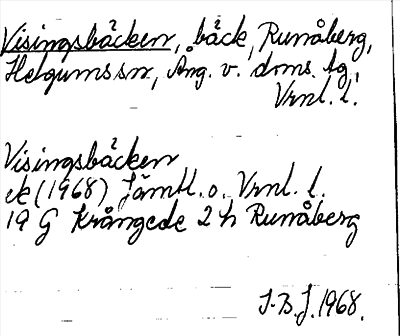 Visingsbäcken, bäck, Runåberg,
Helgums sn, Ång. v. doms. lg,
Vrnl. l.
Visingsbäcken
ek (1968) Jämtl. o. Vrnl. l.
19 G Krångede 2 h Runåberg
J.B.J. 1968.